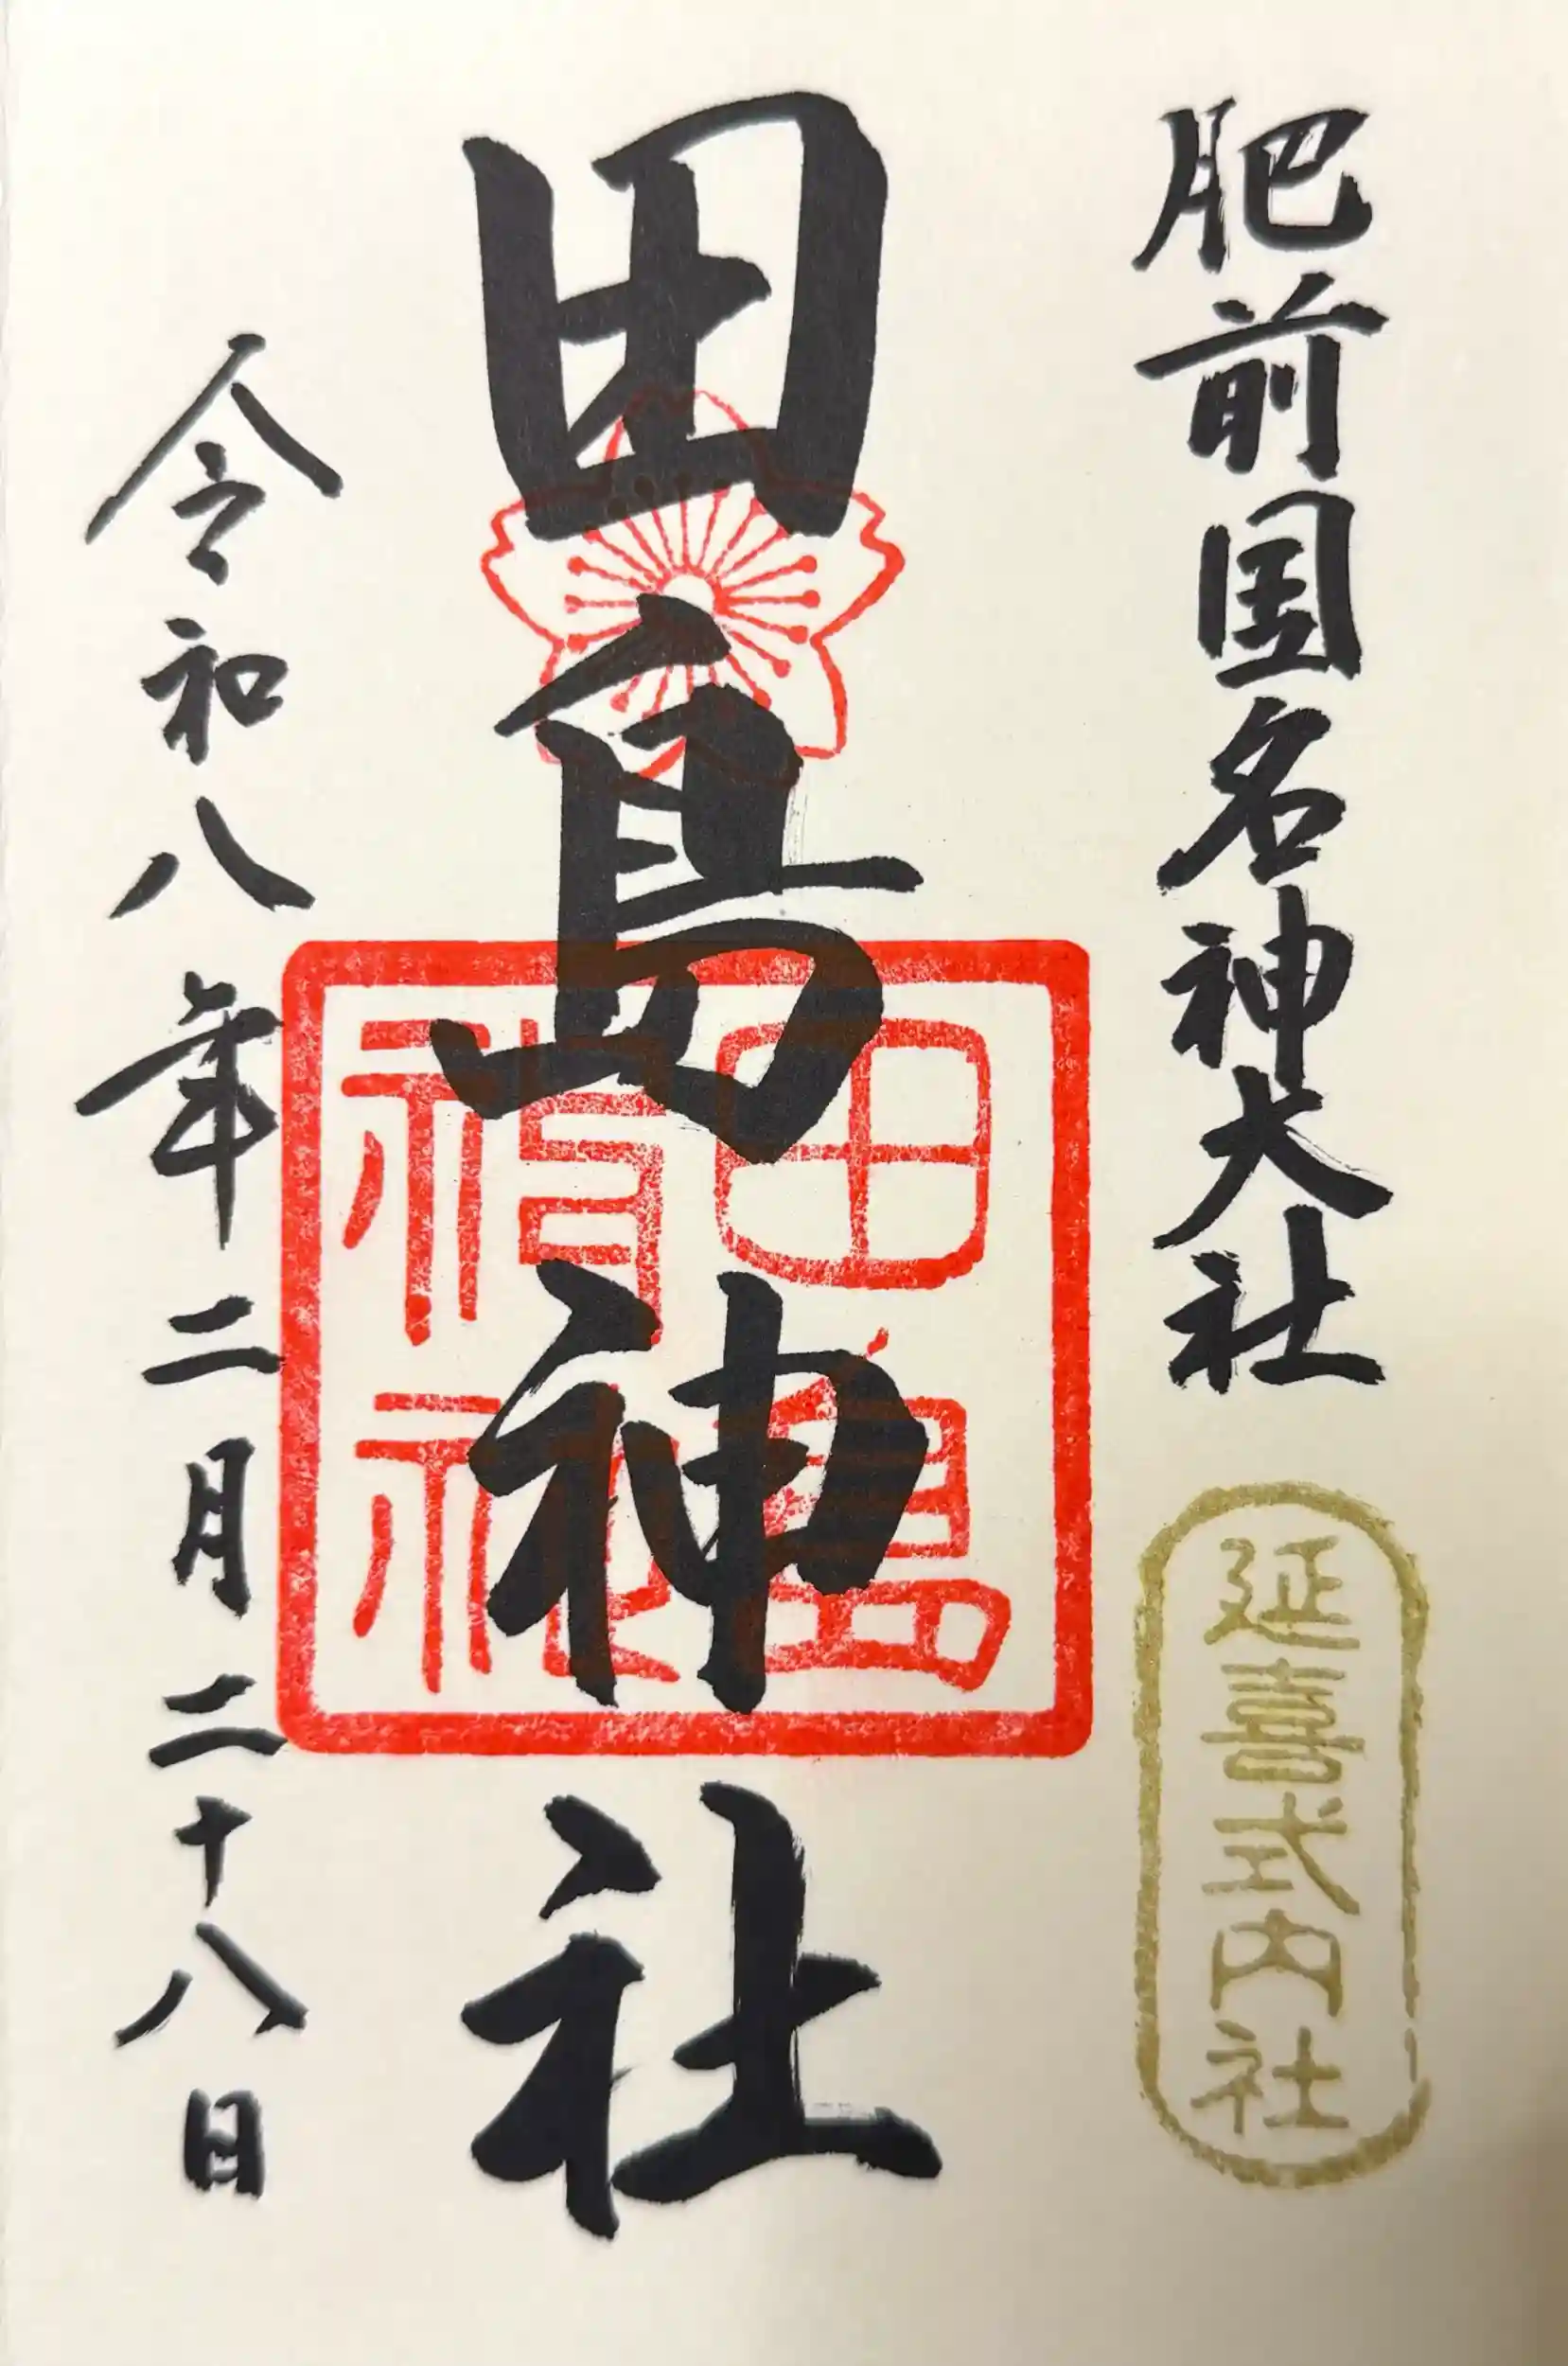 肥前国名神大社
延喜式内社
田島神社
田島神社
令和八年二月二十八日